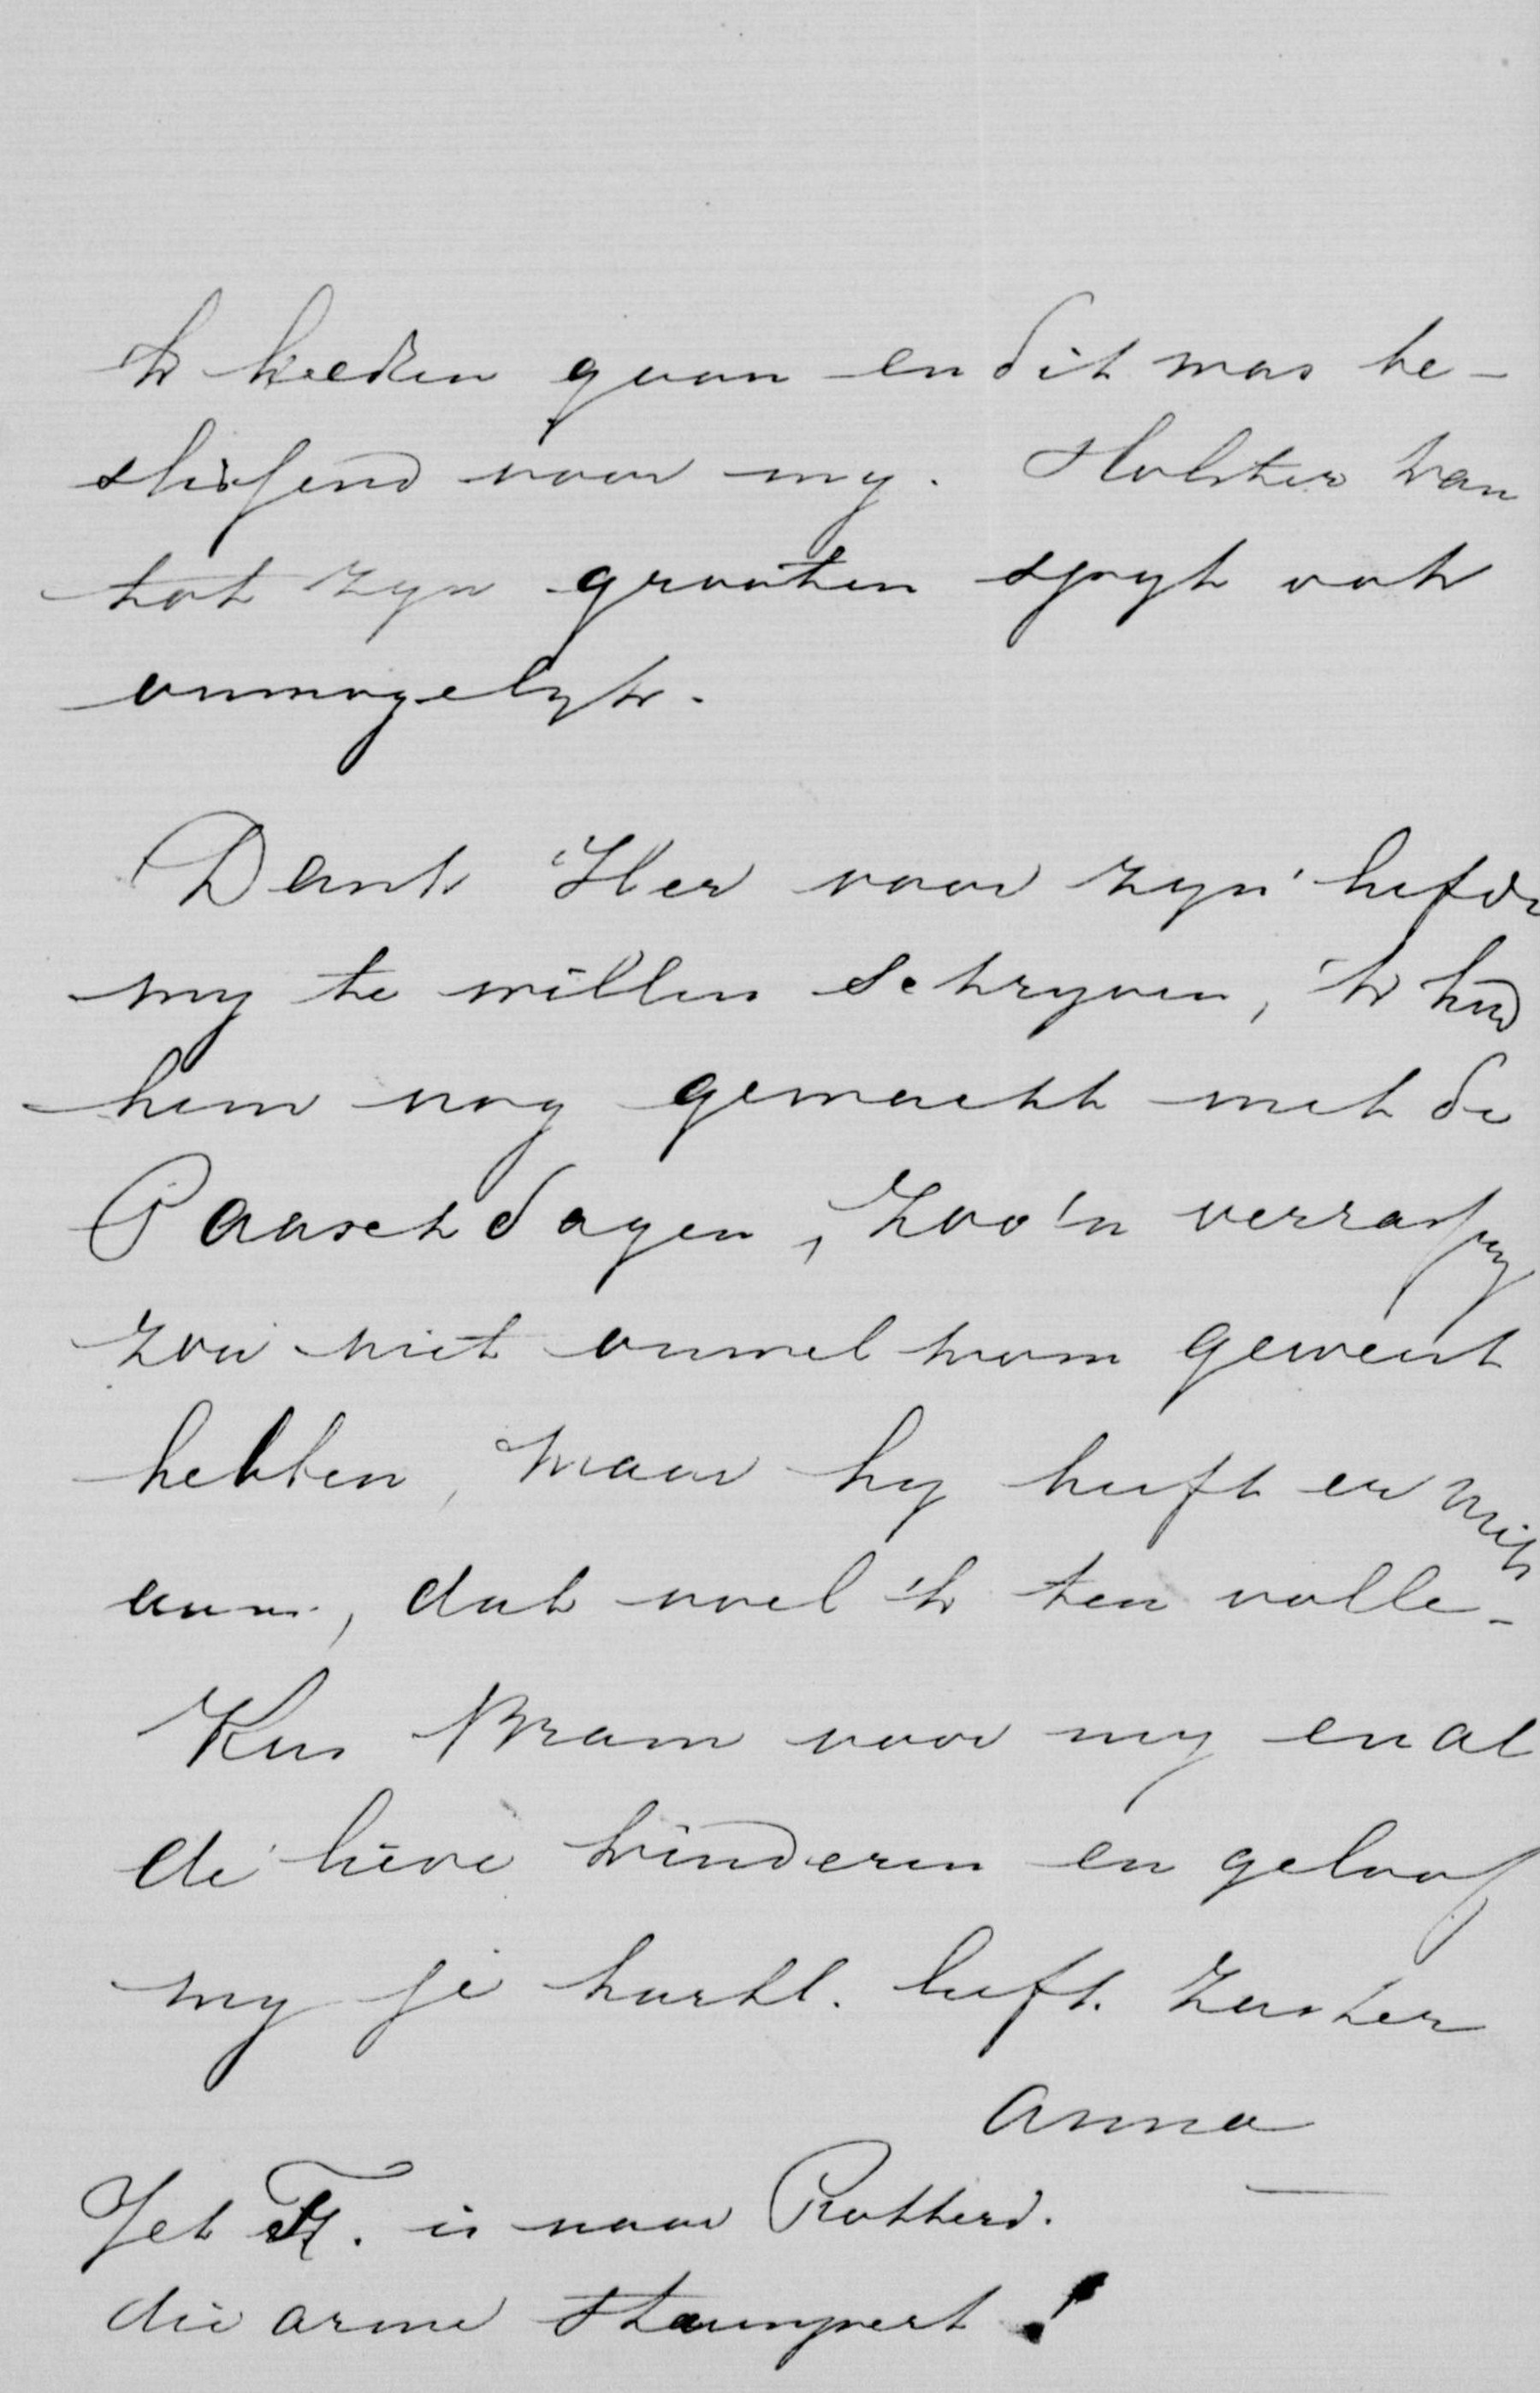 'k heeden gaan en dit was be-
slissend voor my. Holster kan
tot zyn grooten spyt ook
onmogelyk.
Dank Her voor zyn liefde
my te willen schryven, 'k had
hem nog gewacht met de
Paaschdagen, zoo'n verrassing
zou niet onwelkom geweest
hebben, maar hy heeft er niets
aan, dat voel 'k ten volle.
Kus Bram voor my en al
de lieve kinderen en geloof
my je hartl. liefh. Zuster
Anna
Jet is naar Rotterd.
die arme stumpert!